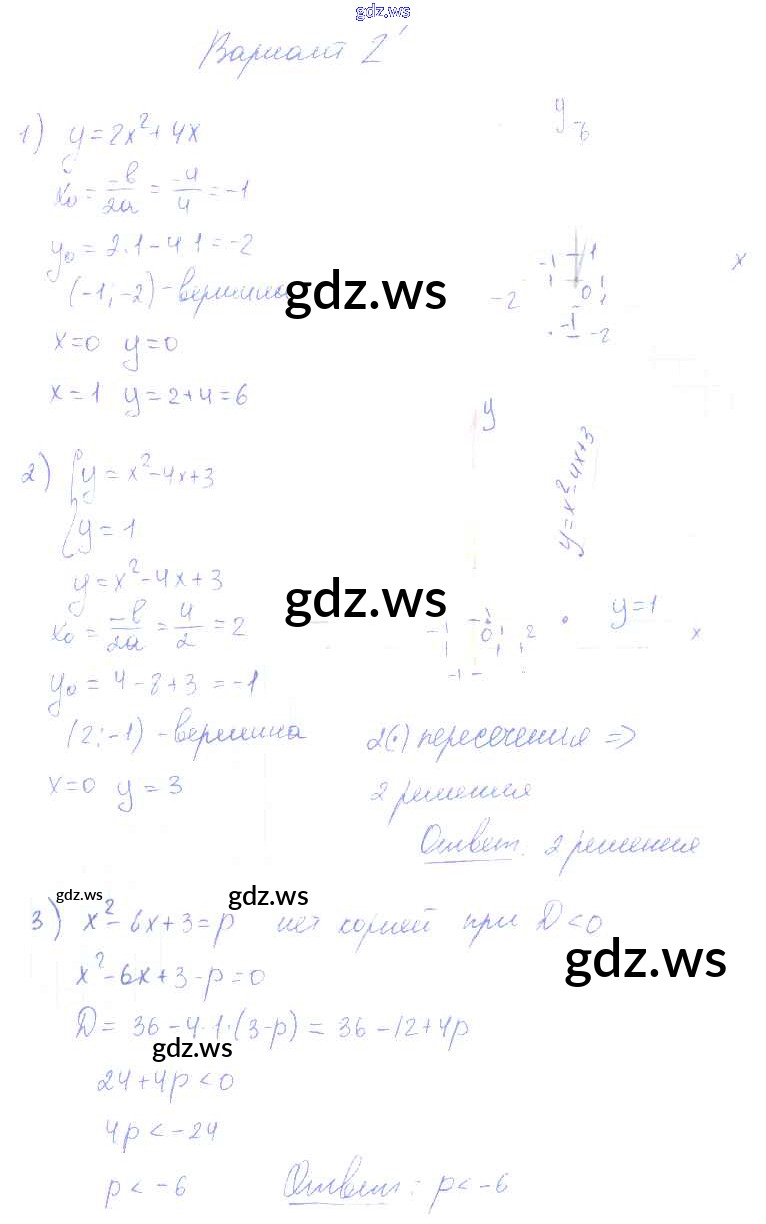 gdz.ws
Вариант 2
1) y = 2x² + 4x
x₀ = -b/2a = -4/4 = -1
y₀ = 2·1 - 4·1 = -2
(-1; -2) - вершина
gdz.ws
x=0 y=0
x=1 y=2+4=6
y
6
-1 1 x
-2 0 1
-1 -2
2) { y = x² - 4x + 3
{ y = 1
y = x² - 4x + 3
gdz.ws
x₀ = -b/2a = 4/2 = 2
y₀ = 4 - 8 + 3 = -1
(2; -1) - вершина
x=0 y=3
y
y = x² - 4x + 3
y=1
-1 0 1 2 x
-1
2(·) пересечения ⇒
2 решения
Ответ. 2 решения
gdz.ws
gdz.ws
3) x² - 6x + 3 = p нет корней при D < 0
gdz.ws
x² - 6x + 3 - p = 0
D = 36 - 4·1·(3-p) = 36 - 12 + 4p
gdz.ws
24 + 4p < 0
4p < -24
p < -6 Ответ: p < -6